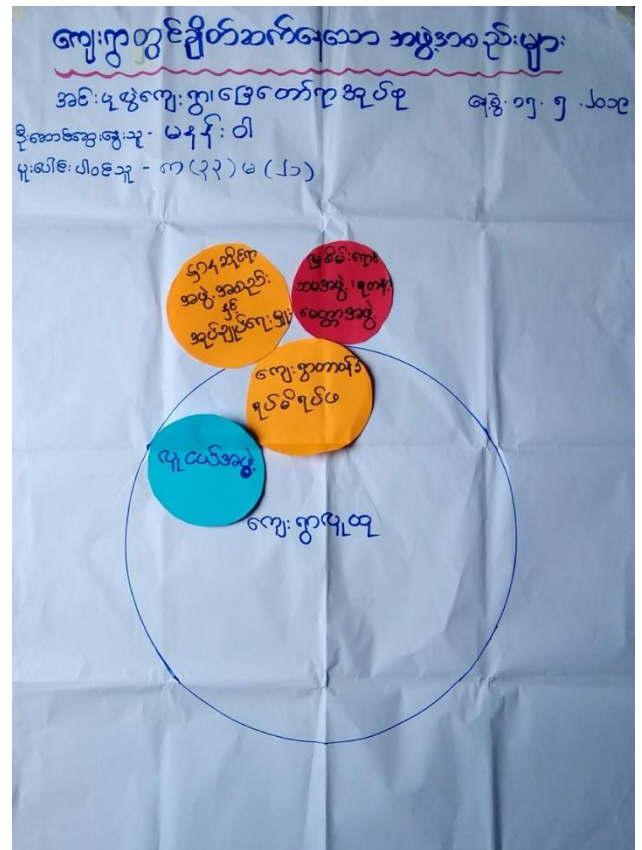 ကျေးရွာတွင်ချိတ်ဆက်နေသော အဖွဲ့အစည်းများ
အင်းပုလွဲကျေးရွာ၊ ဖြေတော်ရာအုပ်စု နေ့စွဲ-၁၅.၅.၂၀၁၉
ဦးဆောင်ဆွေးနွေးသူ - မနန်းဝါ
ပူးပေါင်းပါဝင်သူ - ကာ(၃၃) မ (၂၁)
ဌာနဆိုင်ရာ
အဖွဲ့အစည်း
နှင့်
အုပ်ချုပ်ရေးမှူး
မြစိမ်းရောင်
ဘဏ်အဖွဲ့၊ ရတနာ
မေတ္တာအဖွဲ့
ကျေးရွာတာဝန်ခံ
ရပ်မိရပ်ဖ
လူငယ်အဖွဲ့
ကျေးရွာလူထု